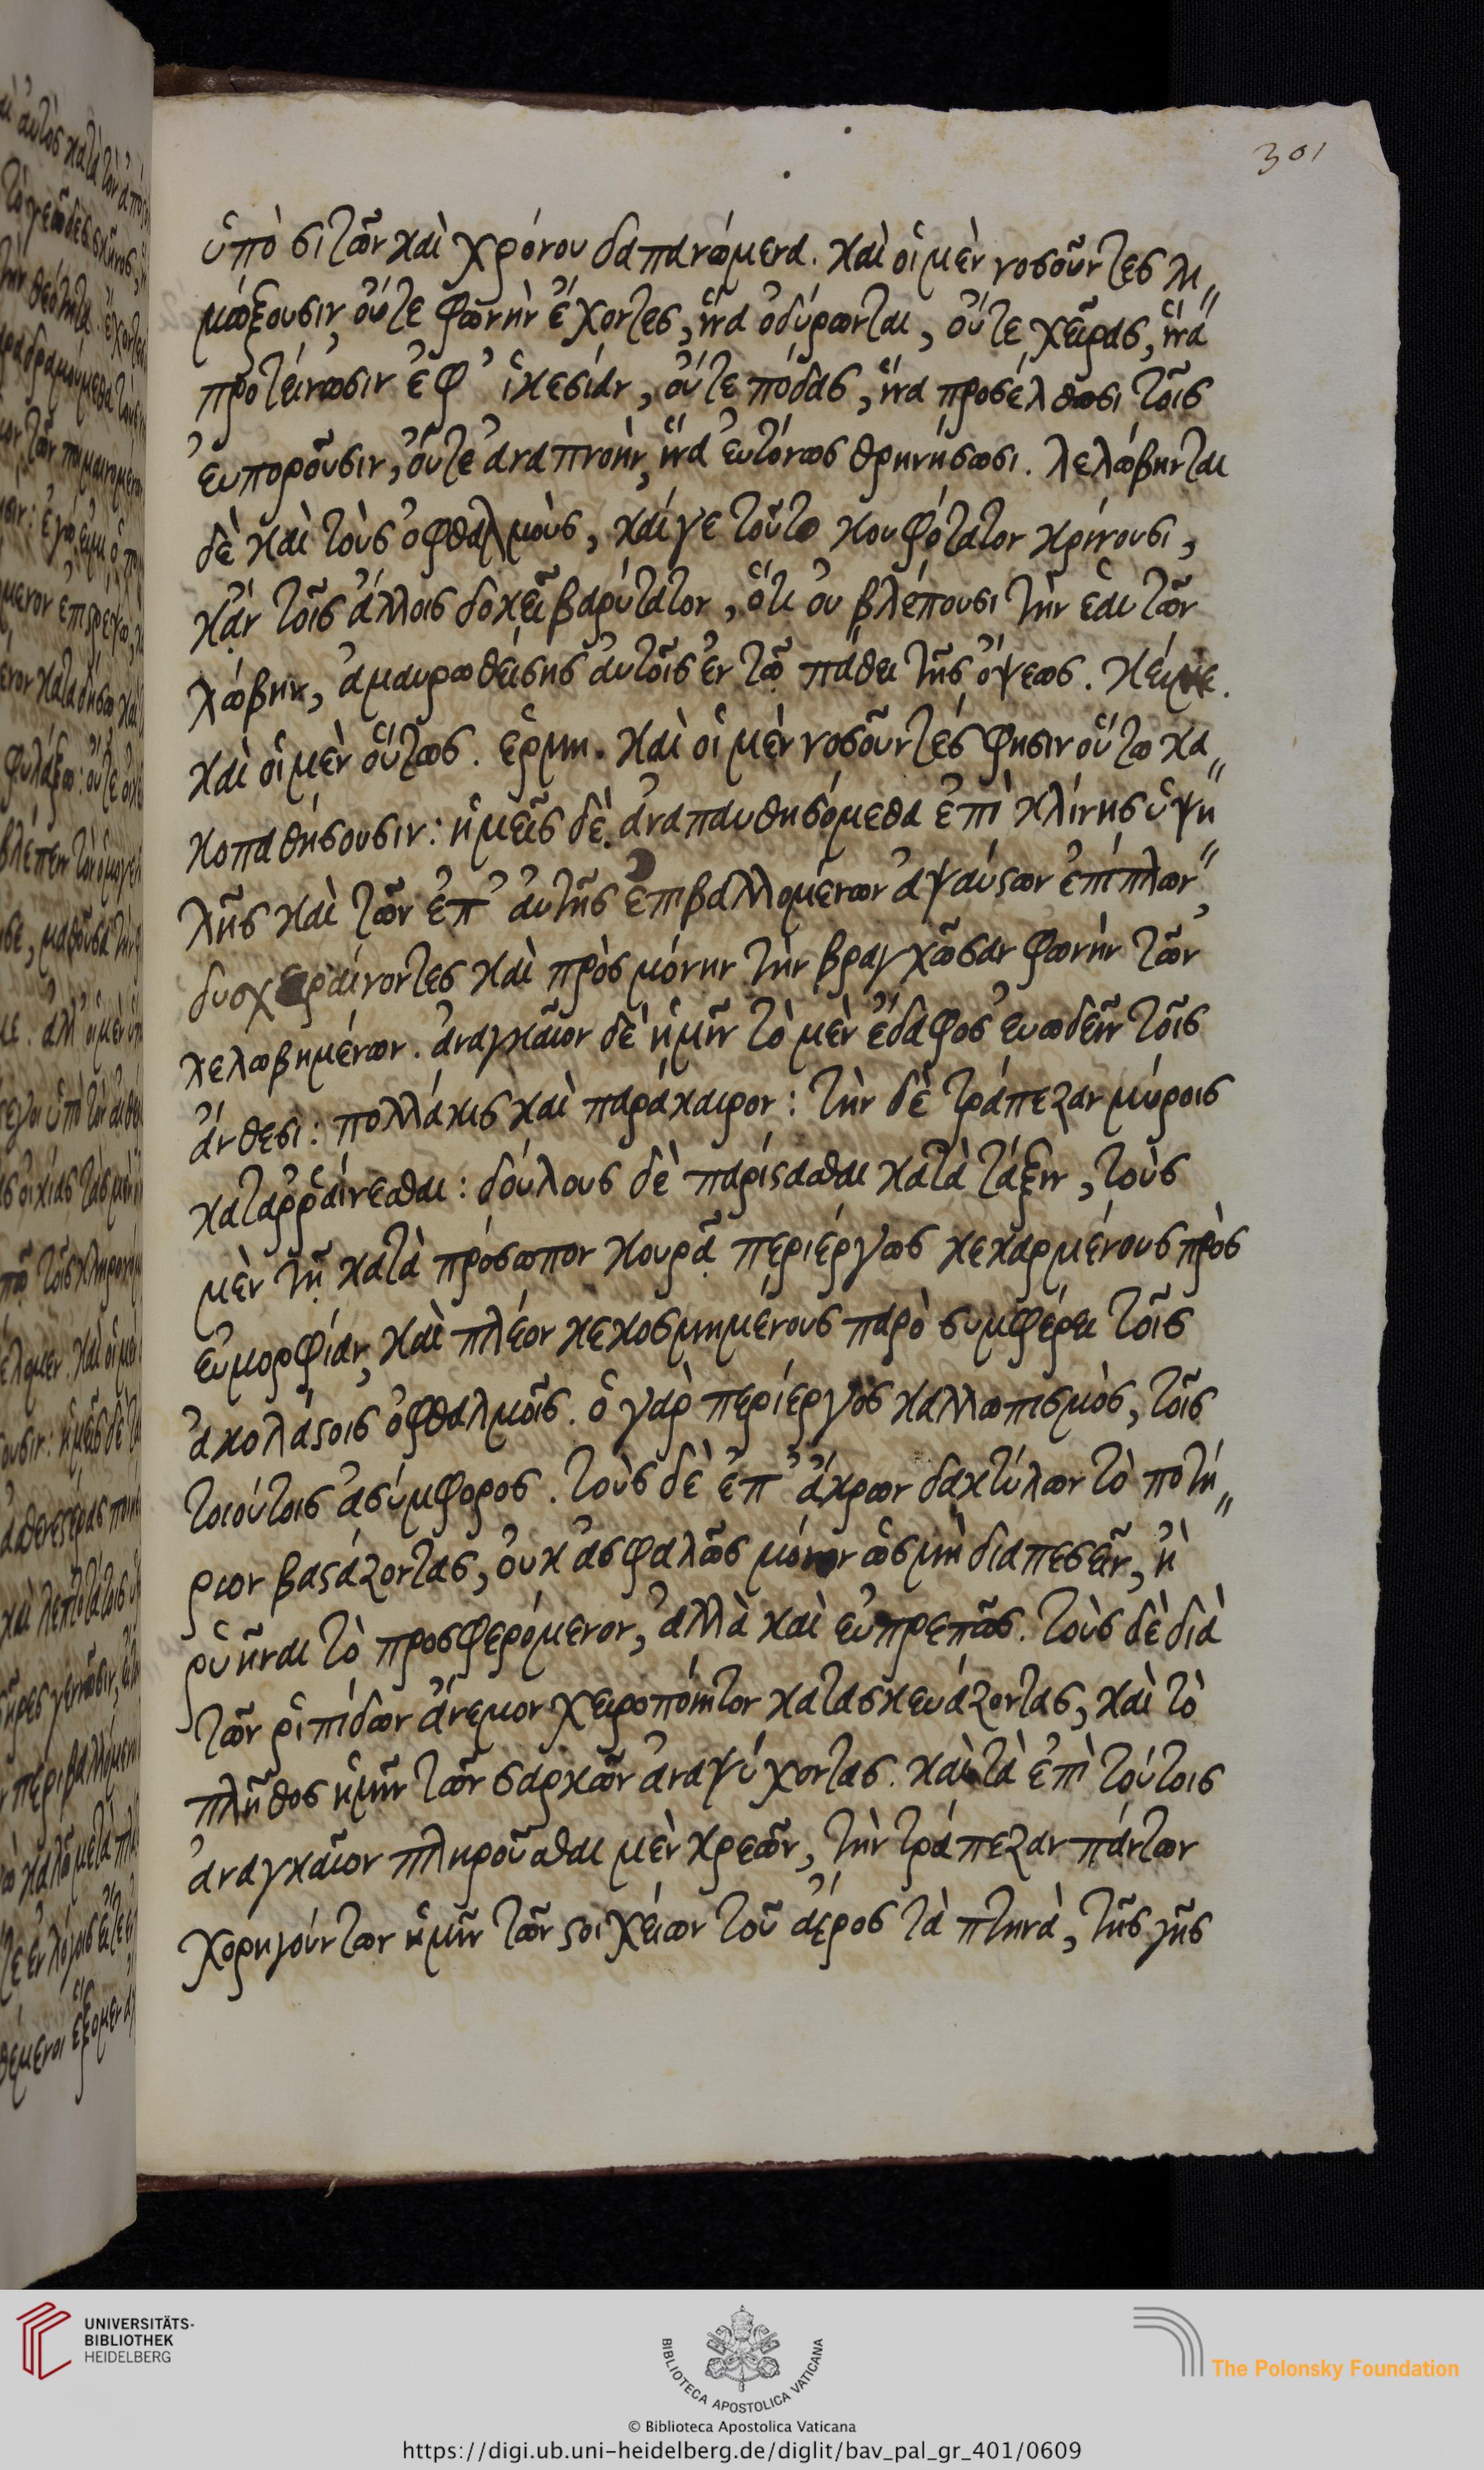 301
ὑπὸ σιτῶν καὶ χρόνου δαπανώμενα. καὶ οἱ μὲν νοσοῦντες λι〃
μώξουσιν, οὔτε φωνὴν ἔχοντες, ἵνα ὀδύρωνται, οὔτε χεῖρας, ἵνα
προτείνωσιν ἐφ' ἱκεσίαν, οὔτε πόδας, ἵνα προσέλθωσι τοῖς
εὐποροῦσιν, οὔτε ἀναπνοὴν, ἵνα εὐτόνως θρηνήσωσι. λελώβηνται
δὲ καὶ τοὺς ὀφθαλμοὺς, καίγε τοῦτο κουφότατον κρίνουσι,
κἂν τοῖς ἄλλοις δοκεῖ βαρύτατον, ὅτι οὐ βλέπουσι τὴν ἑαυτῶν
λώβην, ἀμαυρωθείσης αὐτοῖς ἐν τῷ πάθει τῆς ὄψεως. κείμε.
καὶ οἱ μὲν οὕτως. ἑρμη. καὶ οἱ μὲν νοσοῦντές φησιν οὕτω κα〃
κοπαθήσουσιν: ἡμεῖς δὲ ἀναπαυθησόμεθα ἐπὶ κλίνης ὑψη〃
λῆς καὶ τῶν ἐπ' αὐτῆς ἐπιβαλλομένων ἀψαύστων ἐπίπλων,
δυσχεραίνοντες καὶ πρὸς μόνην τὴν βραγχῶσαν φωνὴν τῶν
λελωβημένων. ἀναγκαῖον δὲ ἡμῖν τὸ μὲν ἔδαφος εὐωδεῖν τοῖς
ἄνθεσι: πολλάκις καὶ παράκαιρον: τὴν δὲ τράπεζαν μύροις
καταῤῥαίνεσθαι: δούλους δὲ παρίστασθαι κατὰ τάξιν, τοὺς
μὲν τῇ κατὰ πρόσωπον κουρᾷ περιέργως κεκαρμένους πρὸς
εὐμορφίαν, καὶ πλέον κεκοσμημένους παρὸ συμφέρει τοῖς
ἀκολάστοις ὀφθαλμοῖς. ὁ γὰρ περίεργος καλλωπισμὸς, τοῖς
τοιούτοις ἀσύμφορος. τοὺς δὲ ἐπ' ἄκρων δακτύλων τὸ ποτή〃
ριον βαστάζοντας, οὐκ ἀσφαλῶς μόνον ὡς μὴ διαπεσεῖν, ἢ
ῥυῆναι τὸ προσφερόμενον, ἀλλὰ καὶ εὐπρεπῶς. τοὺς δὲ διὰ
τῶν ῥιπίδων ἄνεμον χειροποίητον κατασκευάζοντας, καὶ τὸ
πλῆθος ἡμῖν τῶν σαρκῶν ἀναψύχοντας. καὶ τὰ ἐπὶ τούτοις
ἀναγκαῖον πληροῦσθαι μὲν κρεῶν, τὴν τράπεζαν πάντων
χορηγούντων ἡμῖν τῶν στοιχείων τοῦ ἀέρος τὰ πτηνὰ, τῆς γῆς
UNIVERSITÄTS-
BIBLIOTHEK
HEIDELBERG
BIBLIOTECA APOSTOLICA VATICANA
The Polonsky Foundation
© Biblioteca Apostolica Vaticana
https://digi.ub.uni-heidelberg.de/diglit/bav_pal_gr_401/0609